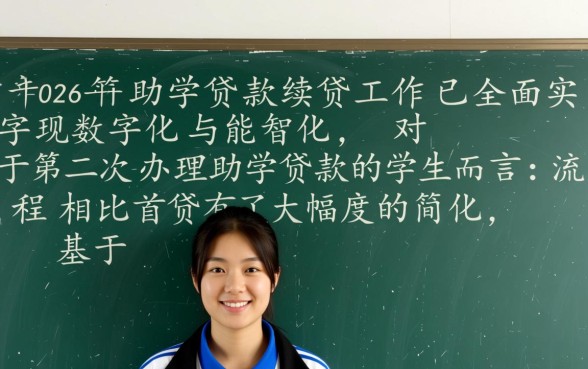 年026年助学贷款续贷工作已全面实
字现数字化与能智化， 对
于第二次办理助学贷款的学生而言：流
程相比首贷有了大幅度的简化，
基于